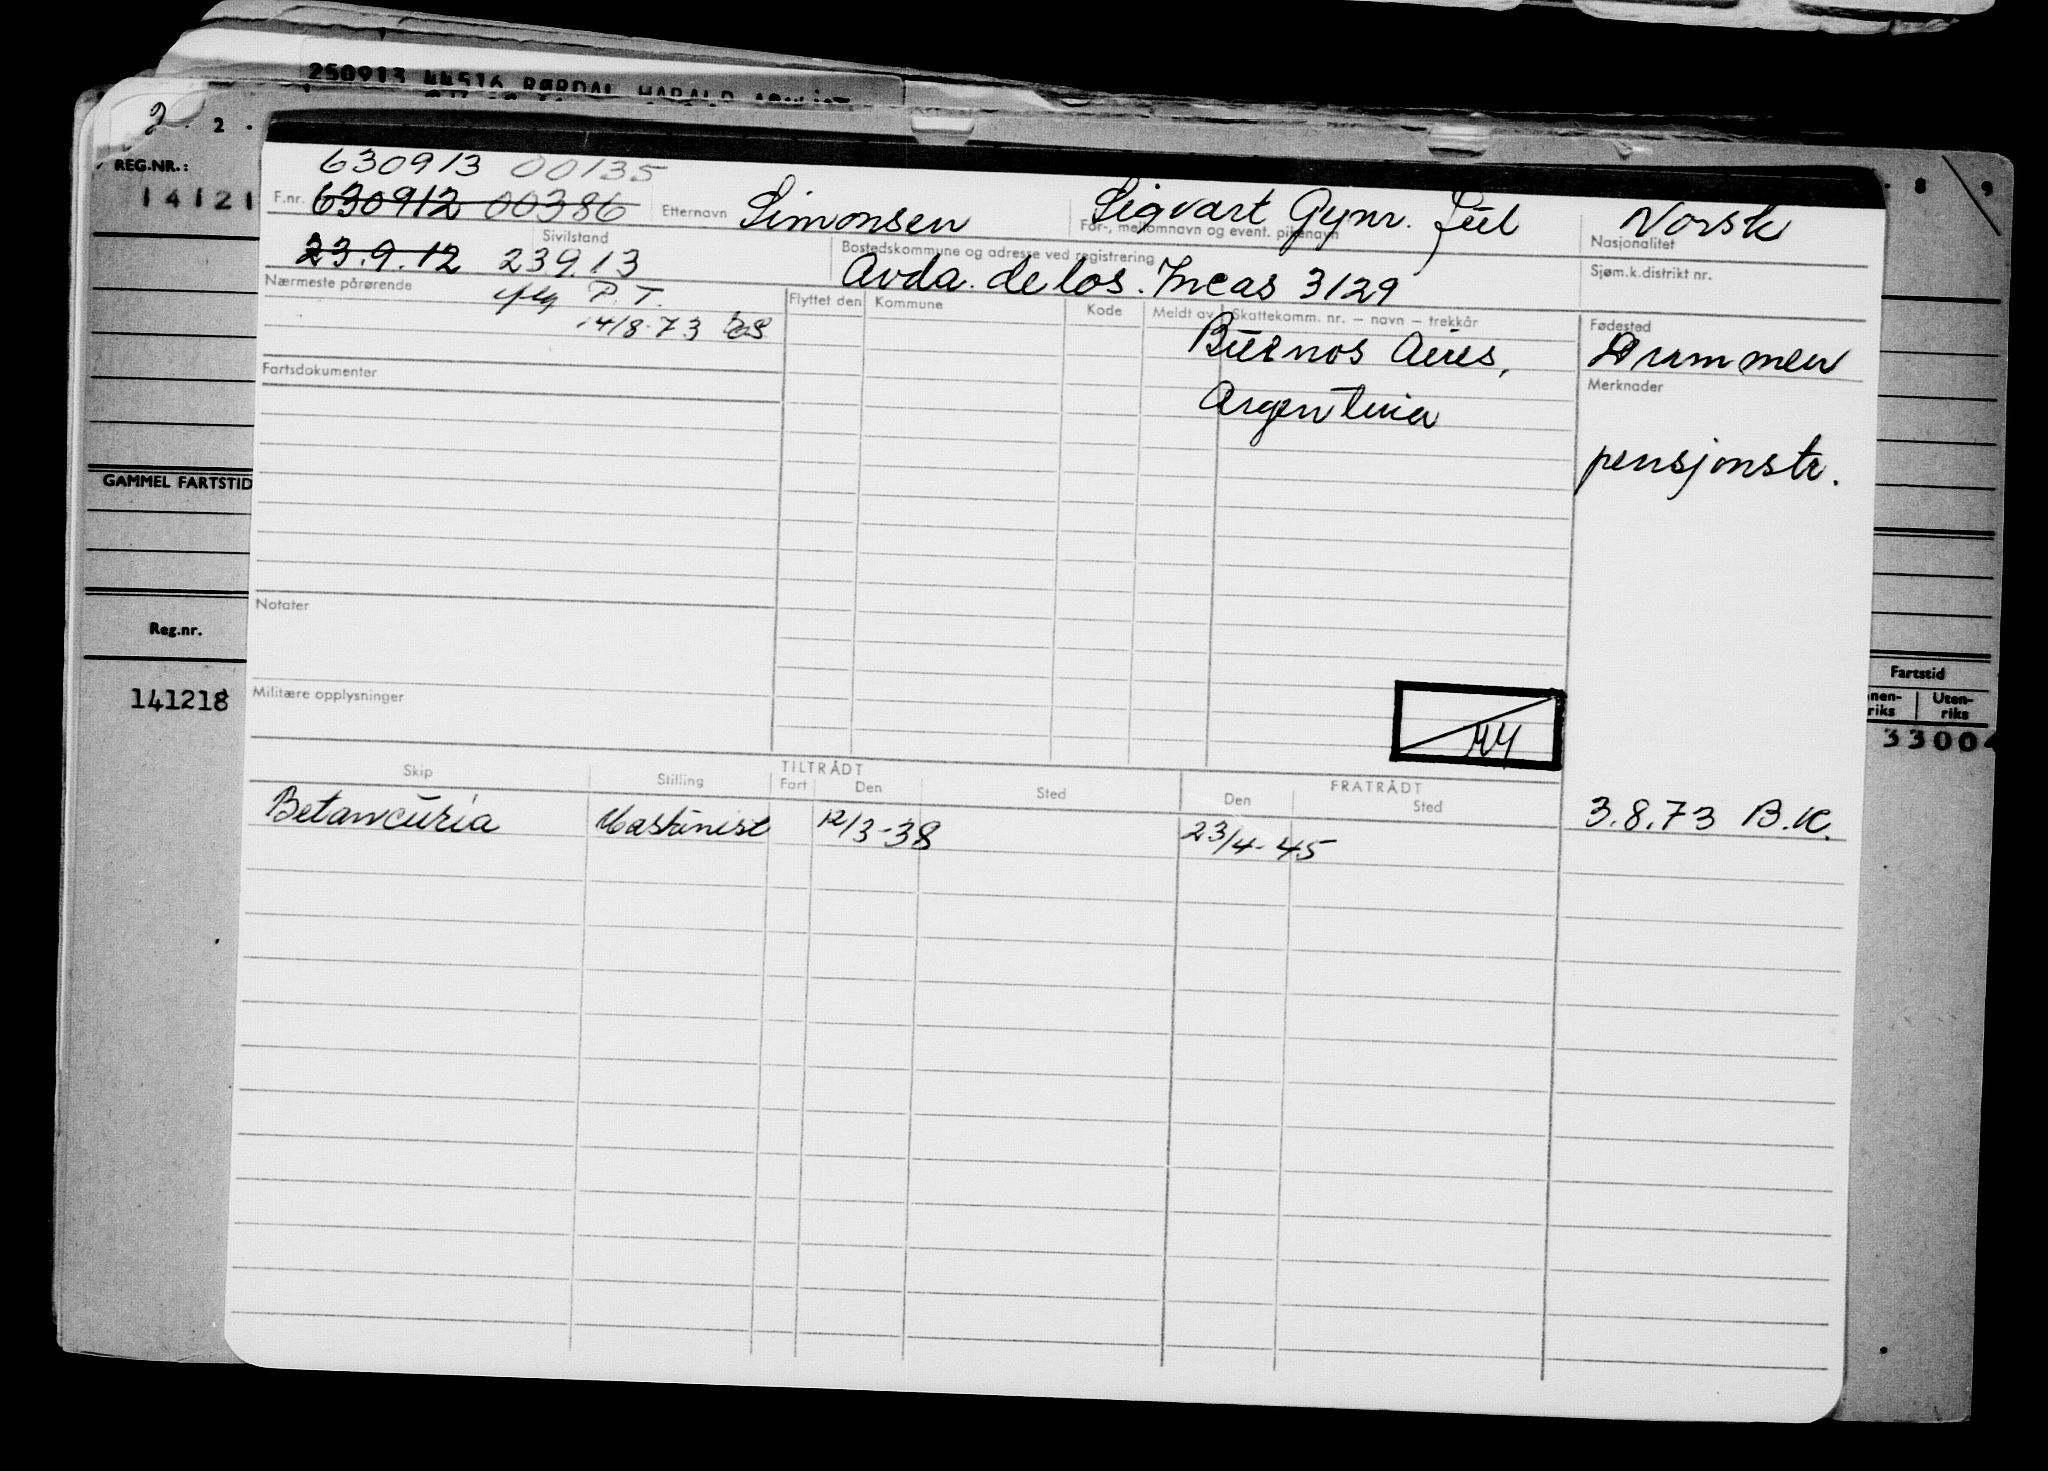 250913 44516 RØRDAL HARALD
2 . 2 .
8 9
REG.NR.:
14121
630913 00135
F.nr. 630912 00386 Etternavn Simonsen Sigvart Gynr. Juel Norsk
For-, mellomnavn og event. pikenavn Nasjonalitet
Sivilstand
23.9.12 23913 Bostedskommune og adresse ved registrering Sjøm.k.distrikt nr.
Avda. de los. Incas 3129
Nærmeste pårørende P.T. Flyttet den Kommune Kode Meldt av Skattekomm. nr. – navn – trekkår Fødested
14/8.73 Buenos Aires, Drammen
Fartsdokumenter Merknader
Argentina
pensjonstr.
GAMMEL FARTSTID
Notater
Reg.nr.
141218
Militære opplysninger
Fartstid
nen-riks Uten-riks
3300
Skip Stilling TILTRÅDT Fart Den Sted FRATRÅDT Den Sted
Betancuria Maskinist 12/3-38 23/4-45 3.8.73 B.K.